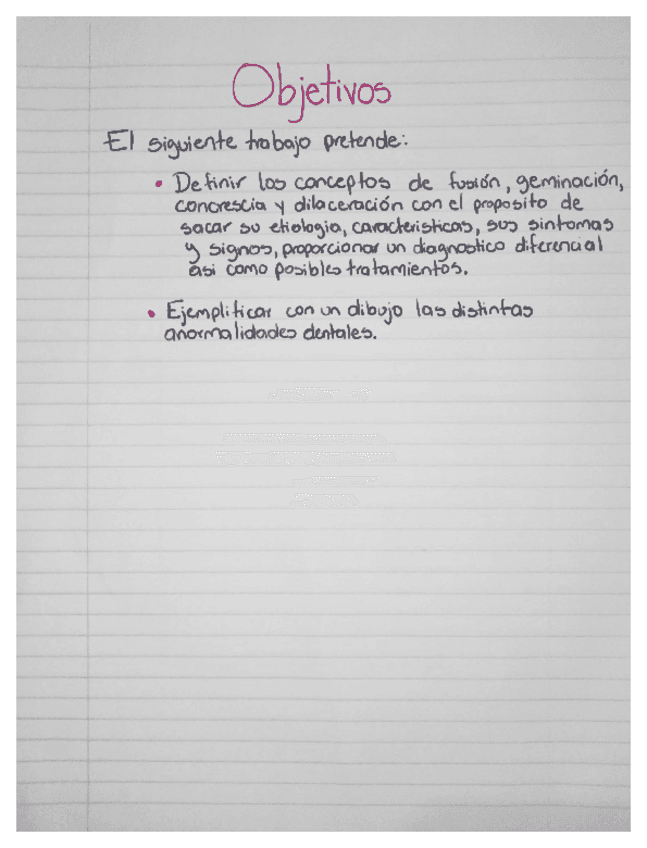 Objetivos
El siguiente trabajo pretende:
• Definir los conceptos de fusión, geminación,
concrescia y dilaceración con el proposito de
sacar su etiologia, caracteristicas, sus sintomas
y signos, proporcionar un diagnostico diferencial
asi como posibles tratamientos.
• Ejemplificar con un dibujo las distintas
anormalidades dentales.